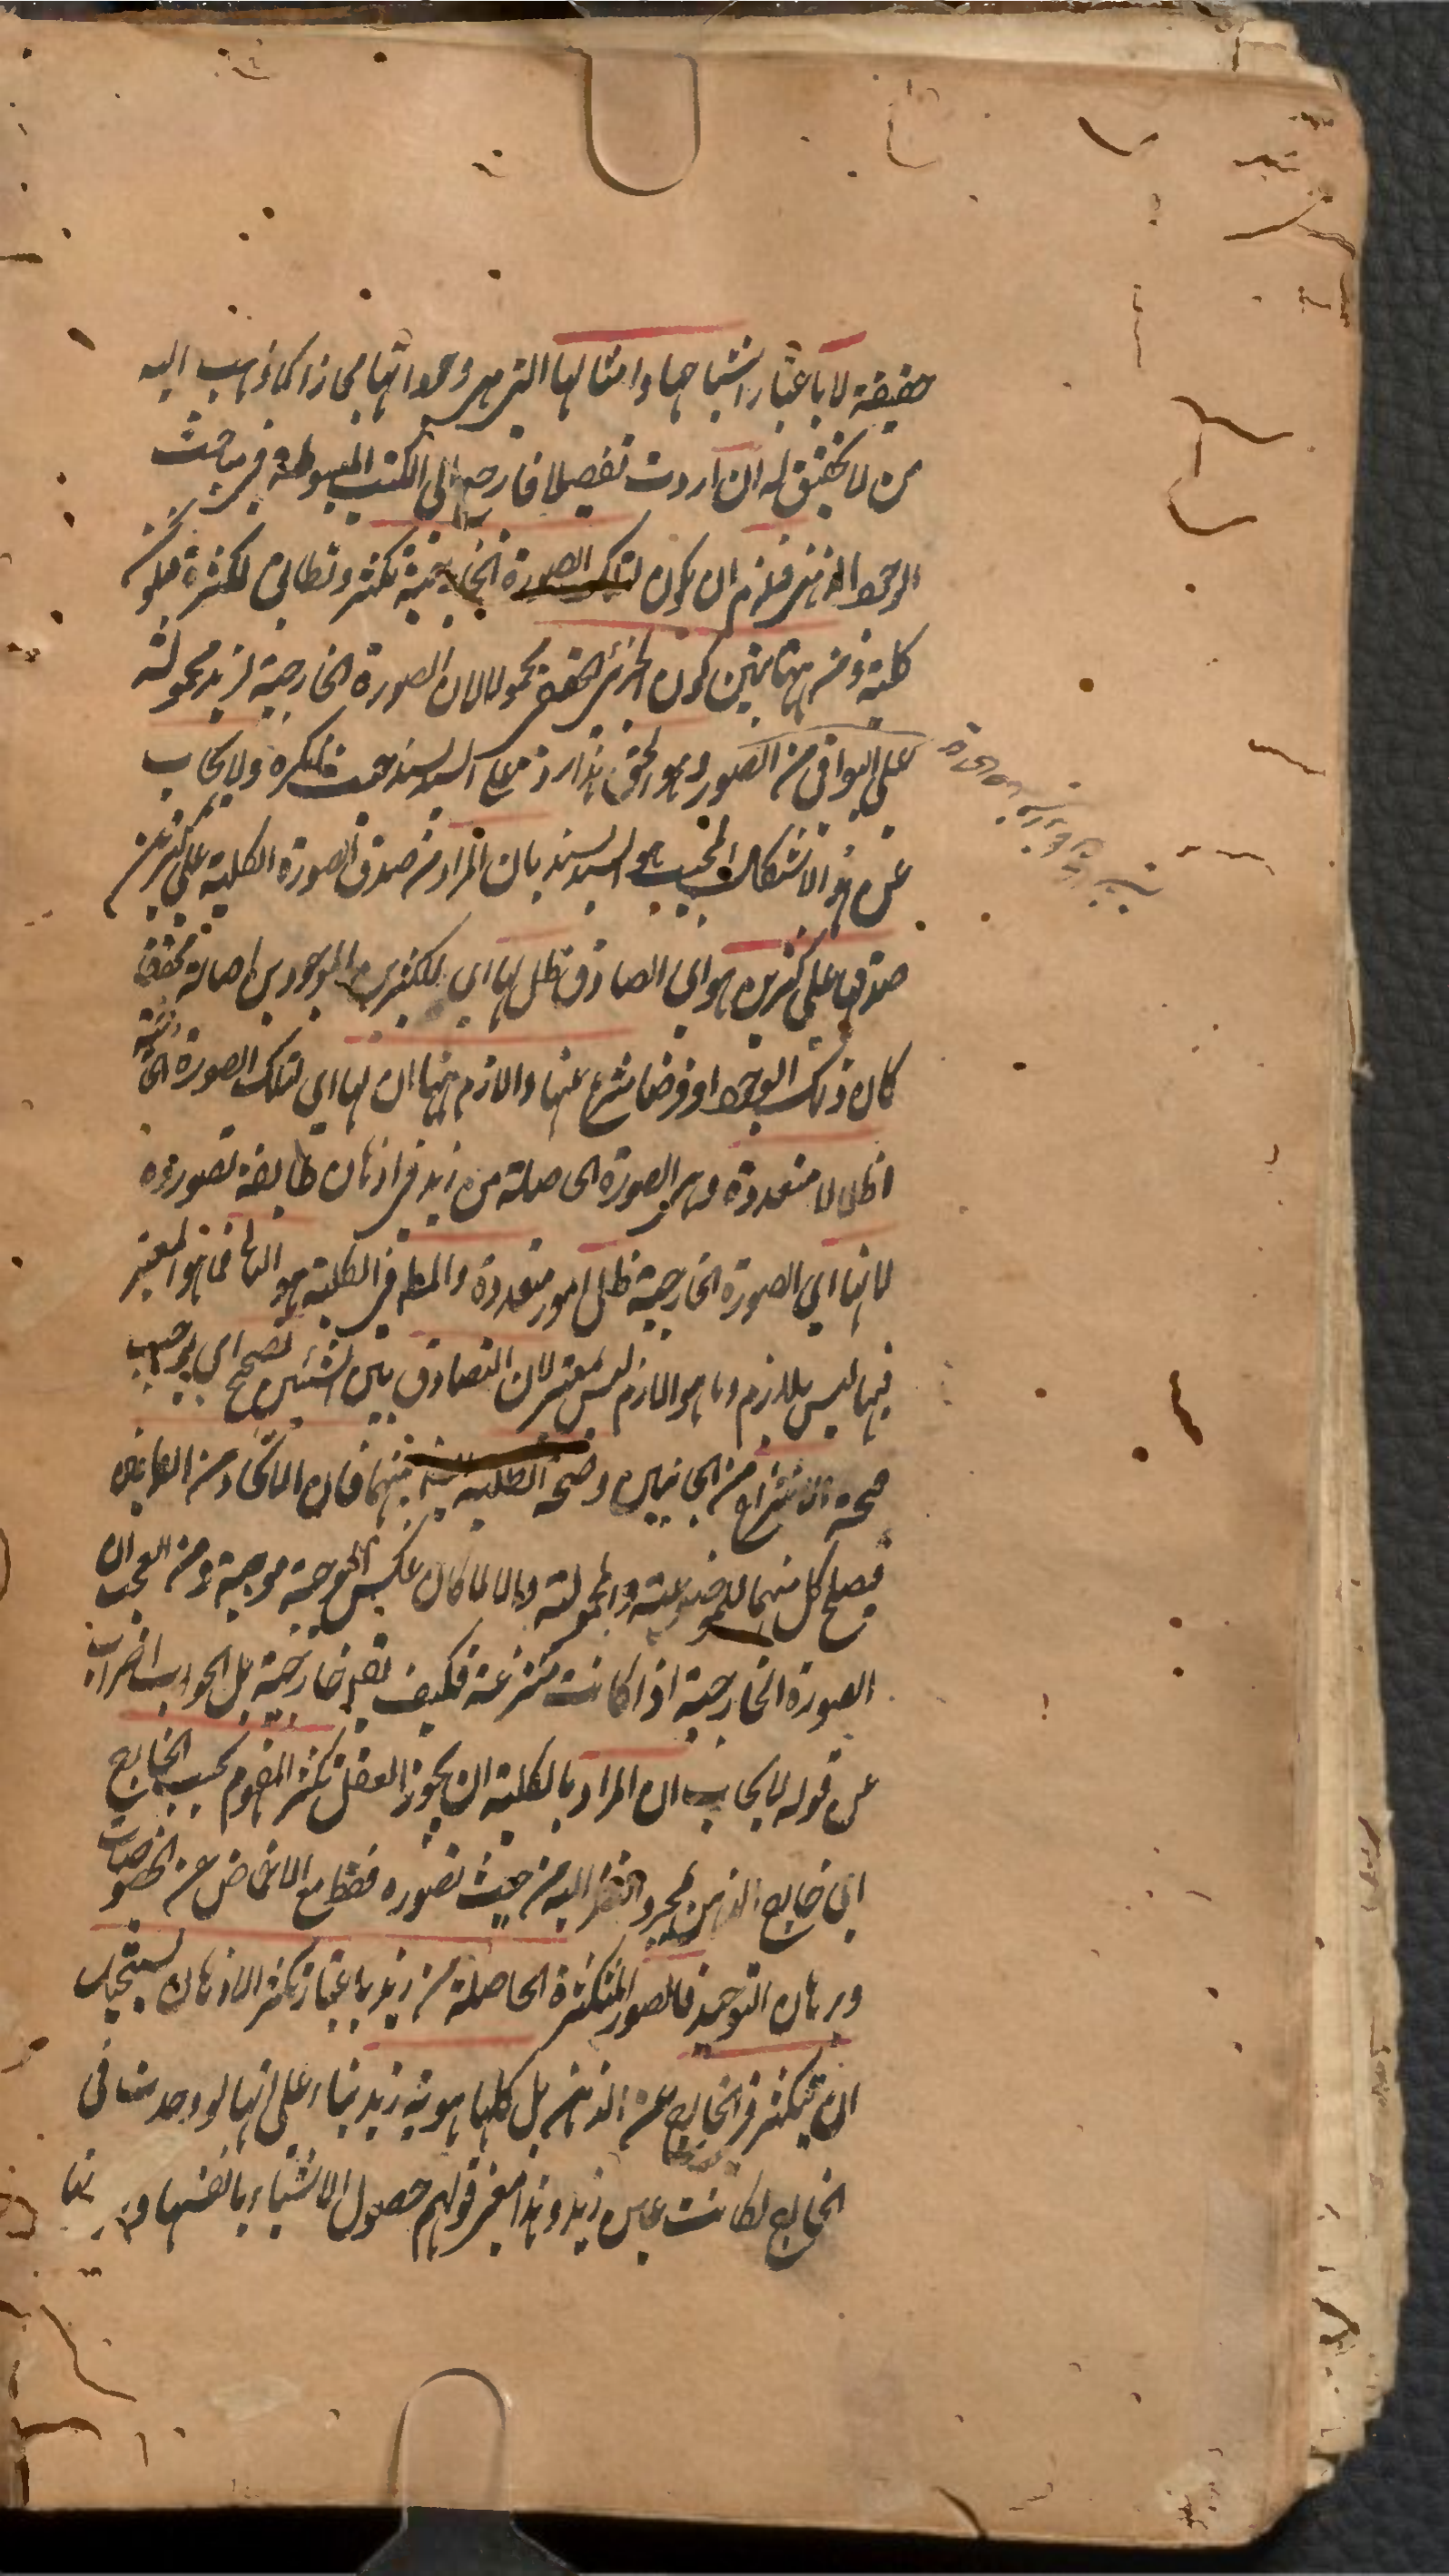 حقيقة لا باعتبار اشباحها و امثالها التي هي وجوداتها مجازا كما ذهب اليه
من لا تحقيق له ان اردت تفصيلا فارجع الى الكتب المبسوطة في مباحث
الوجود الذهني فلزم ان يكون لتلك الصورة الخارجية تكثر و تطابق لكثرة فيكون
كلية و من ههنا يتبين كون الجزئي الحقيقي محمولا لان الصورة الخارجية لزيد محمولة
على البواقي من الصور و هو الحق هذا رد على السيد السند حيث ينكره و لا يجاب
عن هذا الاشكال المجيب هو السيد السند بان المراد من صدق الصورة الكلية على كثيرين
صدقها على كثيرين هو اي الصادق ظل لها اي للكثيرين الموجودين اصالة محققا
كان ذلك الوجود او فرضا منتزع عنها و اللازم ههنا ان لها اي لتلك الصورة الخارجية
اظلالا متعددة و هي الصورة الحاصلة من زيد في اذهان طائفة تصوروه
لا انها اي الصورة الخارجية ظل امور متعددة و المعتبر في الكلية هو الثاني فما هو المعتبر
فيها ليس بلازم و ما هو اللازم ليس بمعتبر لان التصادق بين الشيئين تصحح اي يوجب
صحة الانتزاع من الجانبين و صحة الظلية بينهما فان الاتحاد من الطرفين
فيصلح كل منهما للموضوعية و المحمولية و الا لما كان عكس الموجبة موجبة و من العجب ان
الصورة الخارجية اذا كانت منتزعة فكيف تصير خارجية بل الجواب اضراب
عن قوله لا يجاب ان المراد بالكلية ان يجوز العقل تكثر المفهوم بحسب الخارج
اي خارج الذهن بمجرد النظر اليه من حيث تصوره فقط مع الاغماض عن الخصوصيات
و برهان التوحيد فالصور المتكثرة الحاصلة من زيد باعتبار تكثر الاذهان يستحيل
ان يتكثر في الخارج عن الذهن بل كلها هوية زيد بناء على انها لو وجدت في
الخارج لكانت عين زيد و هذا معنى قولهم حصول الاشياء بانفسها و